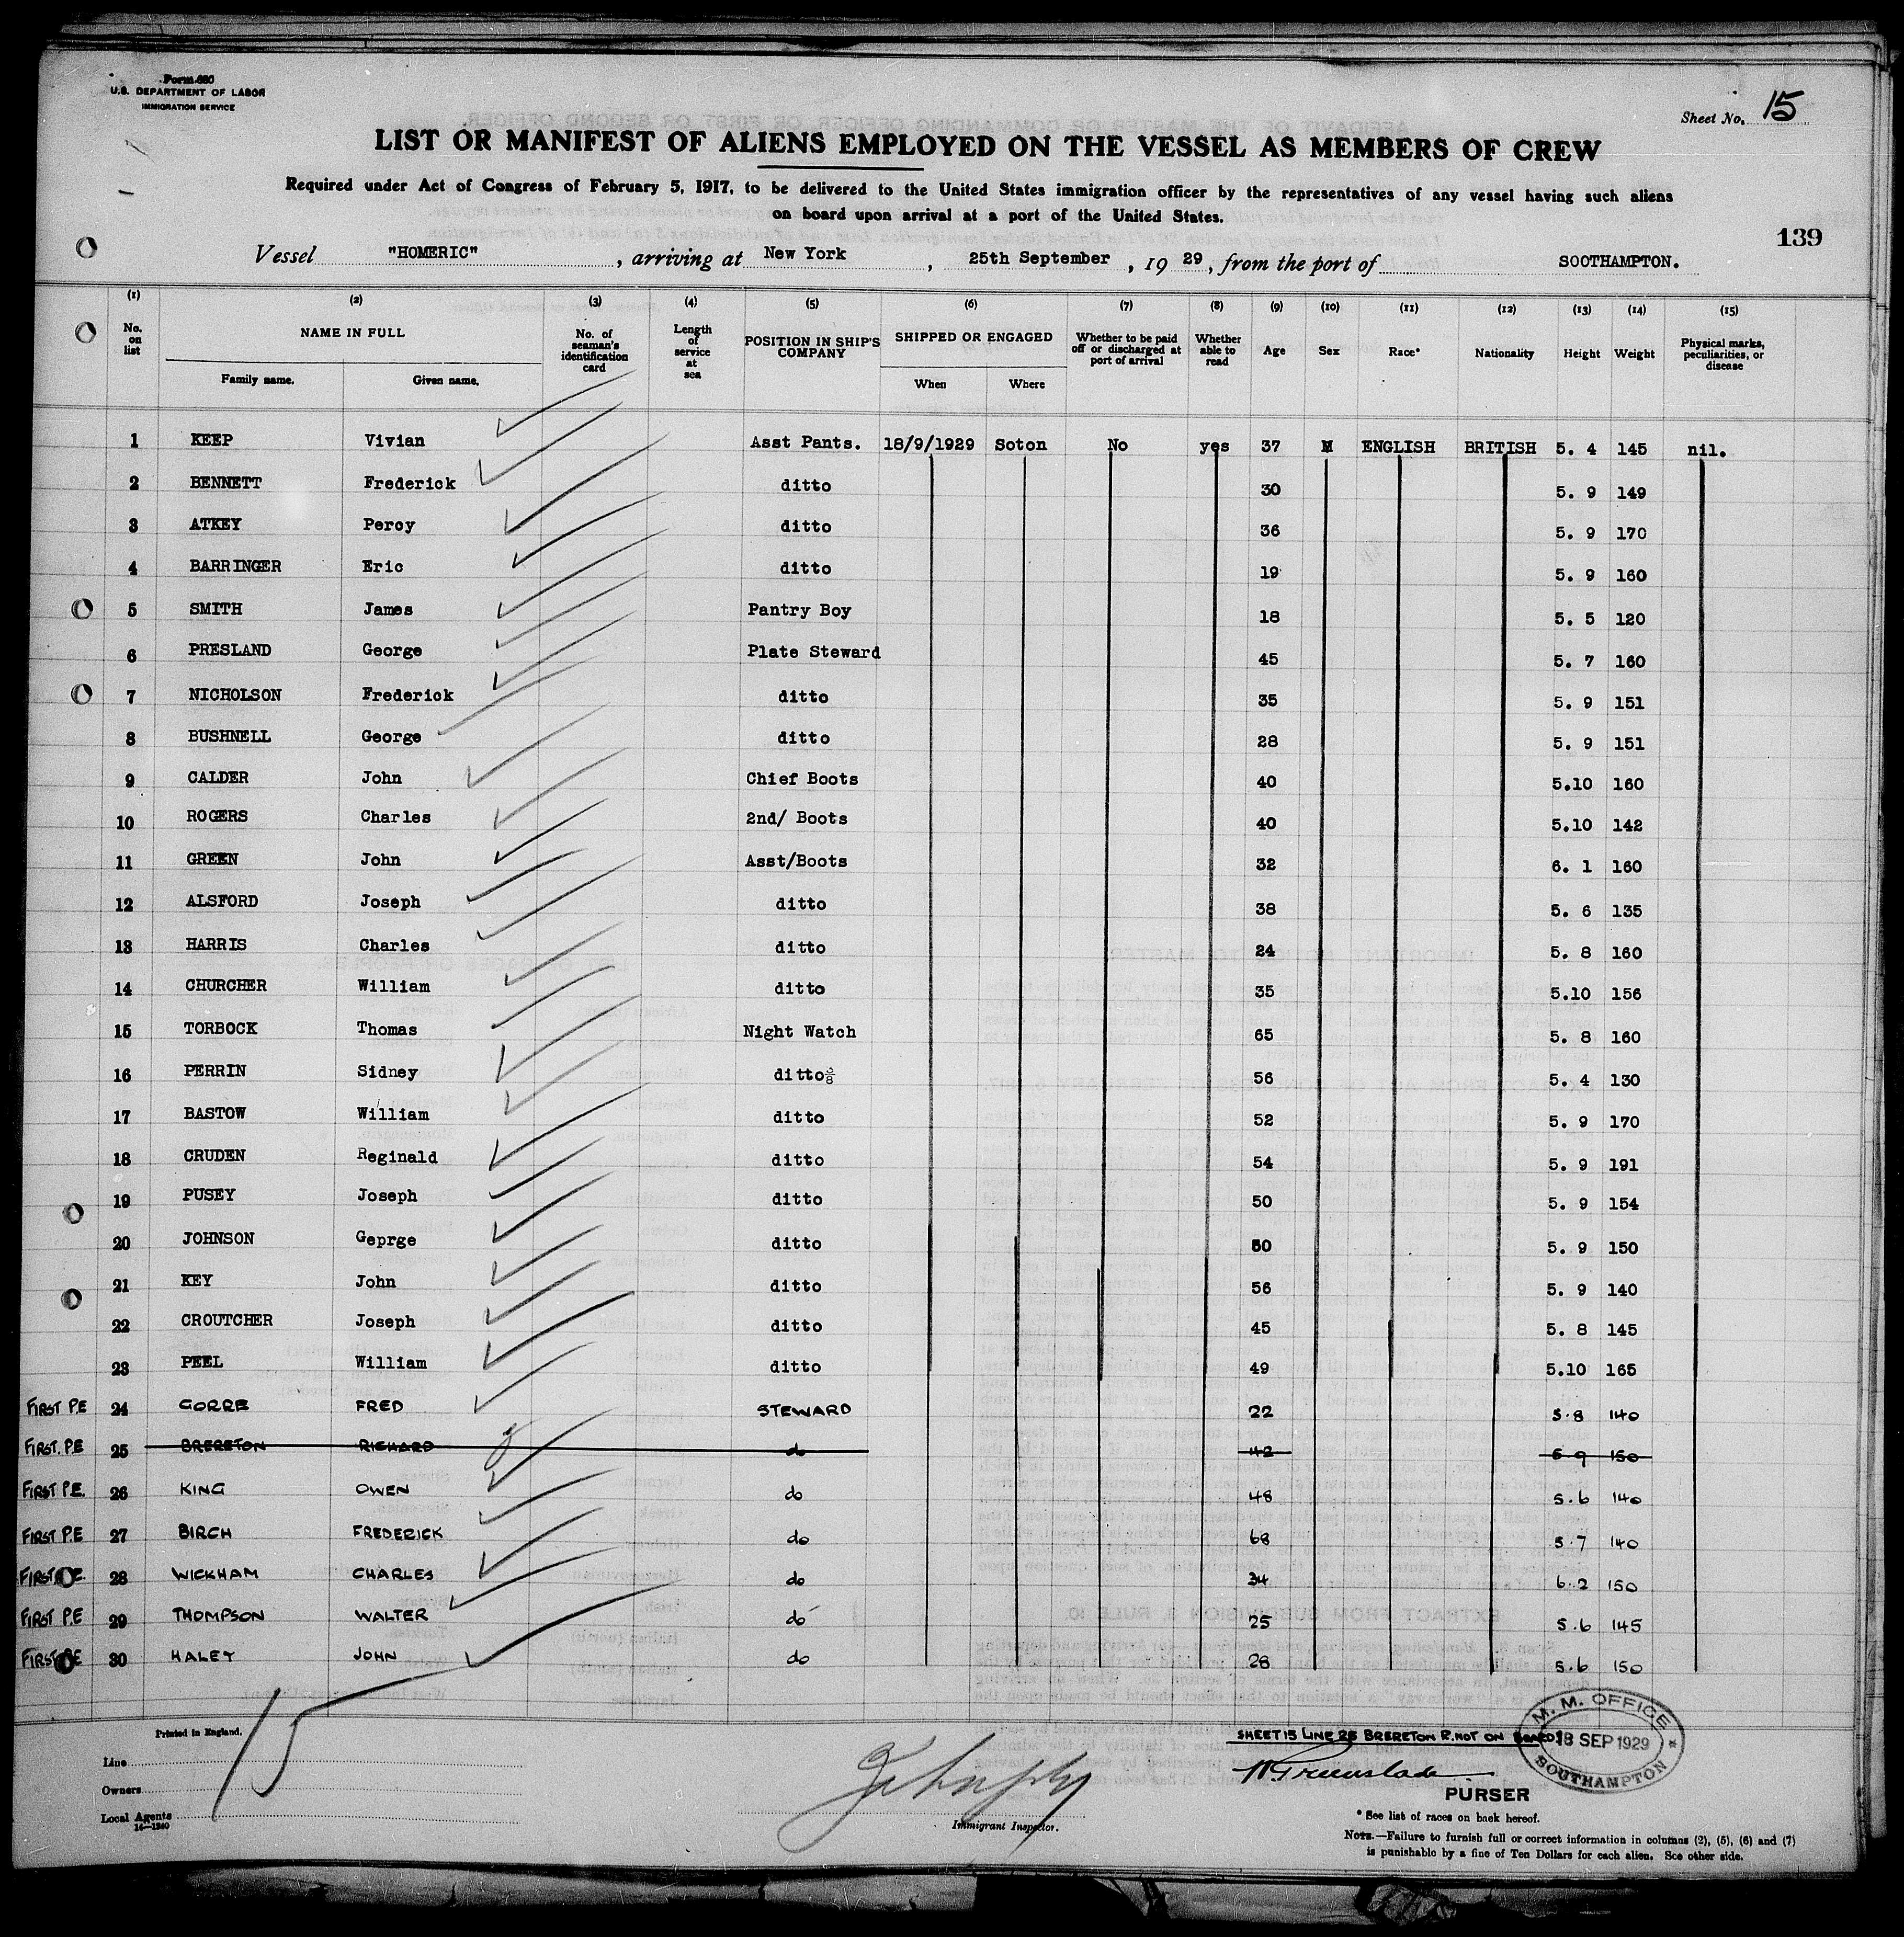 Form 680
U.S. DEPARTMENT OF LABOR
IMMIGRATION SERVICE
Sheet No. 15
LIST OR MANIFEST OF ALIENS EMPLOYED ON THE VESSEL AS MEMBERS OF CREW
Required under Act of Congress of February 5, 1917, to be delivered to the United States immigration officer by the representatives of any vessel having such aliens
on board upon arrival at a port of the United States.
139
Vessel "HOMERIC", arriving at New York, 25th September, 19 29, from the port of SOOTHAMPTON.
(1) (2) (3) (4) (5) (6) (7) (8) (9) (10) (11) (12) (13) (14) (15)
No. on list NAME IN FULL Family name. Given name. No. of seaman's identification card Length of service at sea POSITION IN SHIP'S COMPANY SHIPPED OR ENGAGED When Where Whether to be paid off or discharged at port of arrival Whether able to read Age Sex Race* Nationality Height Weight Physical marks, peculiarities, or disease
1 KEEP Vivian Asst Pants. 18/9/1929 Soton No yes 37 M ENGLISH BRITISH 5. 4 145 nil.
2 BENNETT Frederick ditto 30 5. 9 149
3 ATKEY Percy ditto 36 5. 9 170
4 BARRINGER Eric ditto 19 5. 9 160
5 SMITH James Pantry Boy 18 5. 5 120
6 PRESLAND George Plate Steward 45 5. 7 160
7 NICHOLSON Frederick ditto 35 5. 9 151
8 BUSHNELL George ditto 28 5. 9 151
9 CALDER John Chief Boots 40 5.10 160
10 ROGERS Charles 2nd/ Boots 40 5.10 142
11 GREEN John Asst/Boots 32 6. 1 160
12 ALSFORD Joseph ditto 38 5. 6 135
13 HARRIS Charles ditto 24 5. 8 160
14 CHURCHER William ditto 35 5.10 156
15 TORBOCK Thomas Night Watch 65 5. 8 160
16 PERRIN Sidney ditto 56 5. 4 130
17 BASTOW William ditto 52 5. 9 170
18 CRUDEN Reginald ditto 54 5. 9 191
19 PUSEY Joseph ditto 50 5. 9 154
20 JOHNSON Geprge ditto 50 5. 9 150
21 KEY John ditto 56 5. 9 140
22 CROUTCHER Joseph ditto 45 5. 8 145
23 PEEL William ditto 49 5.10 165
FIRST P.E 24 GORRE FRED STEWARD 22 5.8 140
FIRST. P.E 25 BRERETON RICHARD do 42 5 9 150
FIRST P.E. 26 KING OWEN do 48 5.6 140
FIRST P.E 27 BIRCH FREDERICK do 68 5.7 140
FIRST P.E. 28 WICKHAM CHARLES do 34 6.2 150
FIRST P.E 29 THOMPSON WALTER do 25 5.6 145
FIRST P.E 30 HALEY JOHN do 28 5.6 150
15
Printed in England.
SHEET 15 LINE 25 BRERETON R. NOT ON BOARD
M. M. OFFICE
18 SEP 1929
SOUTHAMPTON
Line
Owners
Local Agents
14—1240
Immigrant Inspector.
PURSER
* See list of races on back hereof.
NOTE.—Failure to furnish full or correct information in columns (2), (5), (6) and (7)
is punishable by a fine of Ten Dollars for each alien. See other side.